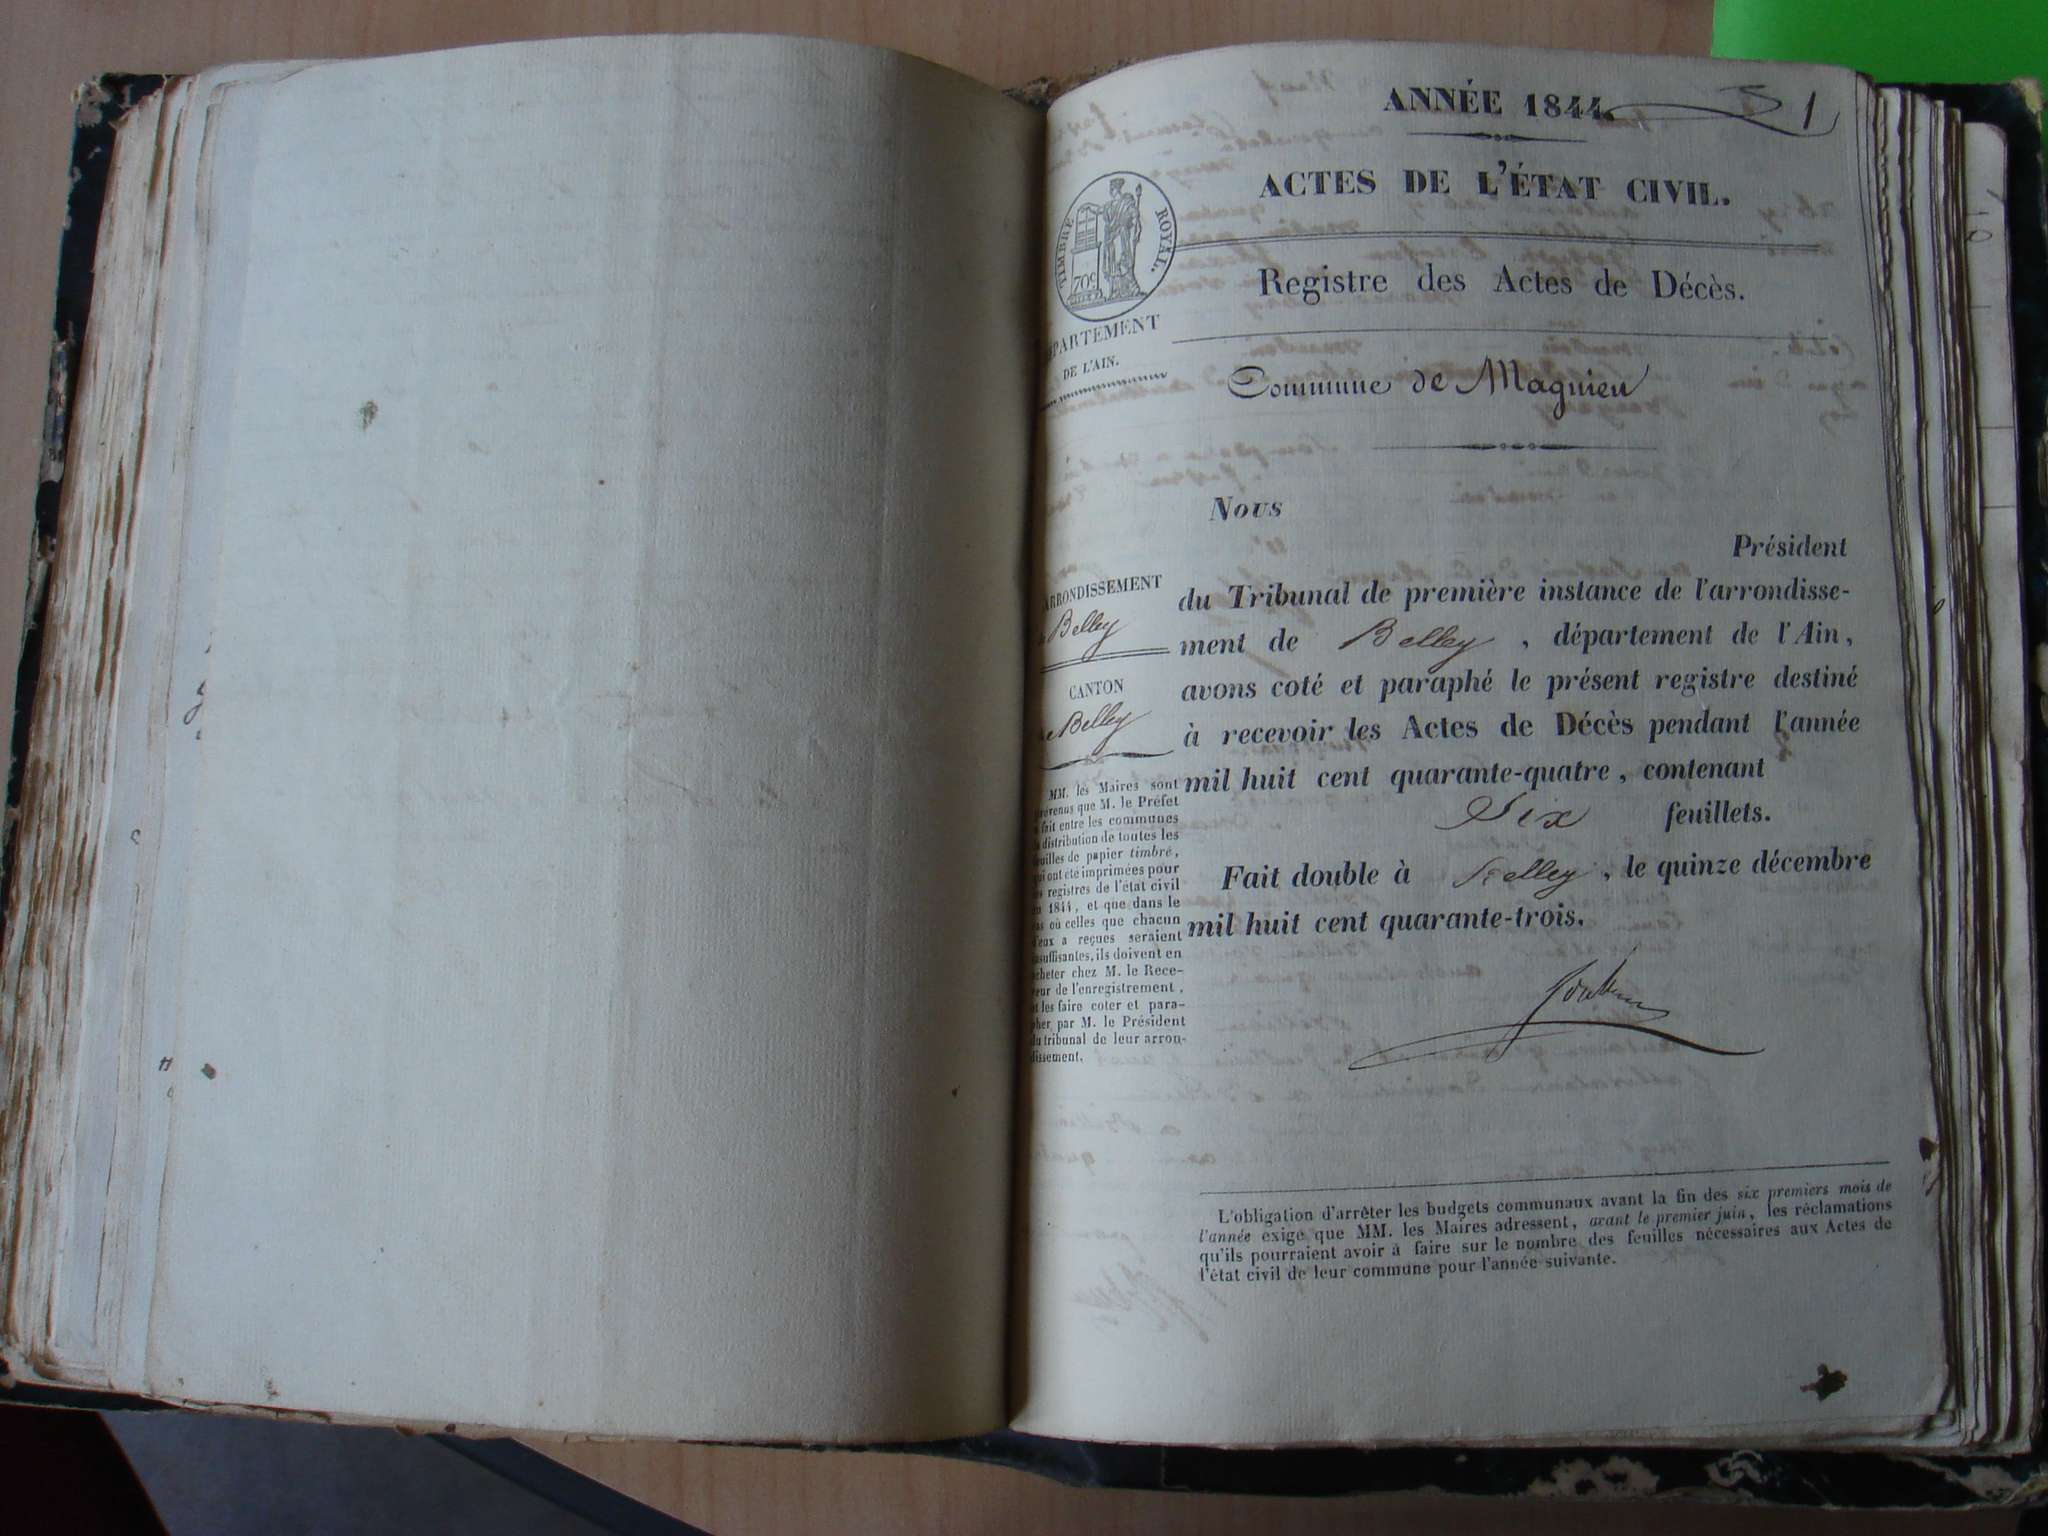 ANNÉE 1844.
1
ACTES DE L'ÉTAT CIVIL.
TIMBRE ROYAL.
70c
Registre des Actes de Décès.
DÉPARTEMENT
DE L'AIN.
Commune de Magnieu
Nous
Président
du Tribunal de première instance de l'arrondisse-
ment de Belley, département de l'Ain,
avons coté et paraphé le présent registre destiné
à recevoir les Actes de Décès pendant l'année
mil huit cent quarante-quatre, contenant
Six feuillets.
Fait double à Belley, le quinze décembre
mil huit cent quarante-trois.
ARRONDISSEMENT
de Belley
CANTON
de Belley
MM. les Maires sont
prévenus que M. le Préfet
a fait entre les communes
la distribution de toutes les
feuilles de papier timbré,
qui ont été imprimées pour
les registres de l'état civil
en 1844, et que dans le
cas où celles que chacun
d'eux a reçues seraient
insuffisantes, ils doivent en
acheter chez M. le Rece-
veur de l'enregistrement,
et les faire coter et para-
pher par M. le Président
du tribunal de leur arron-
dissement.
L'obligation d'arrêter les budgets communaux avant la fin des six premiers mois de
l'année exige que MM. les Maires adressent, avant le premier juin, les réclamations
qu'ils pourraient avoir à faire sur le nombre des feuilles nécessaires aux Actes de
l'état civil de leur commune pour l'année suivante.